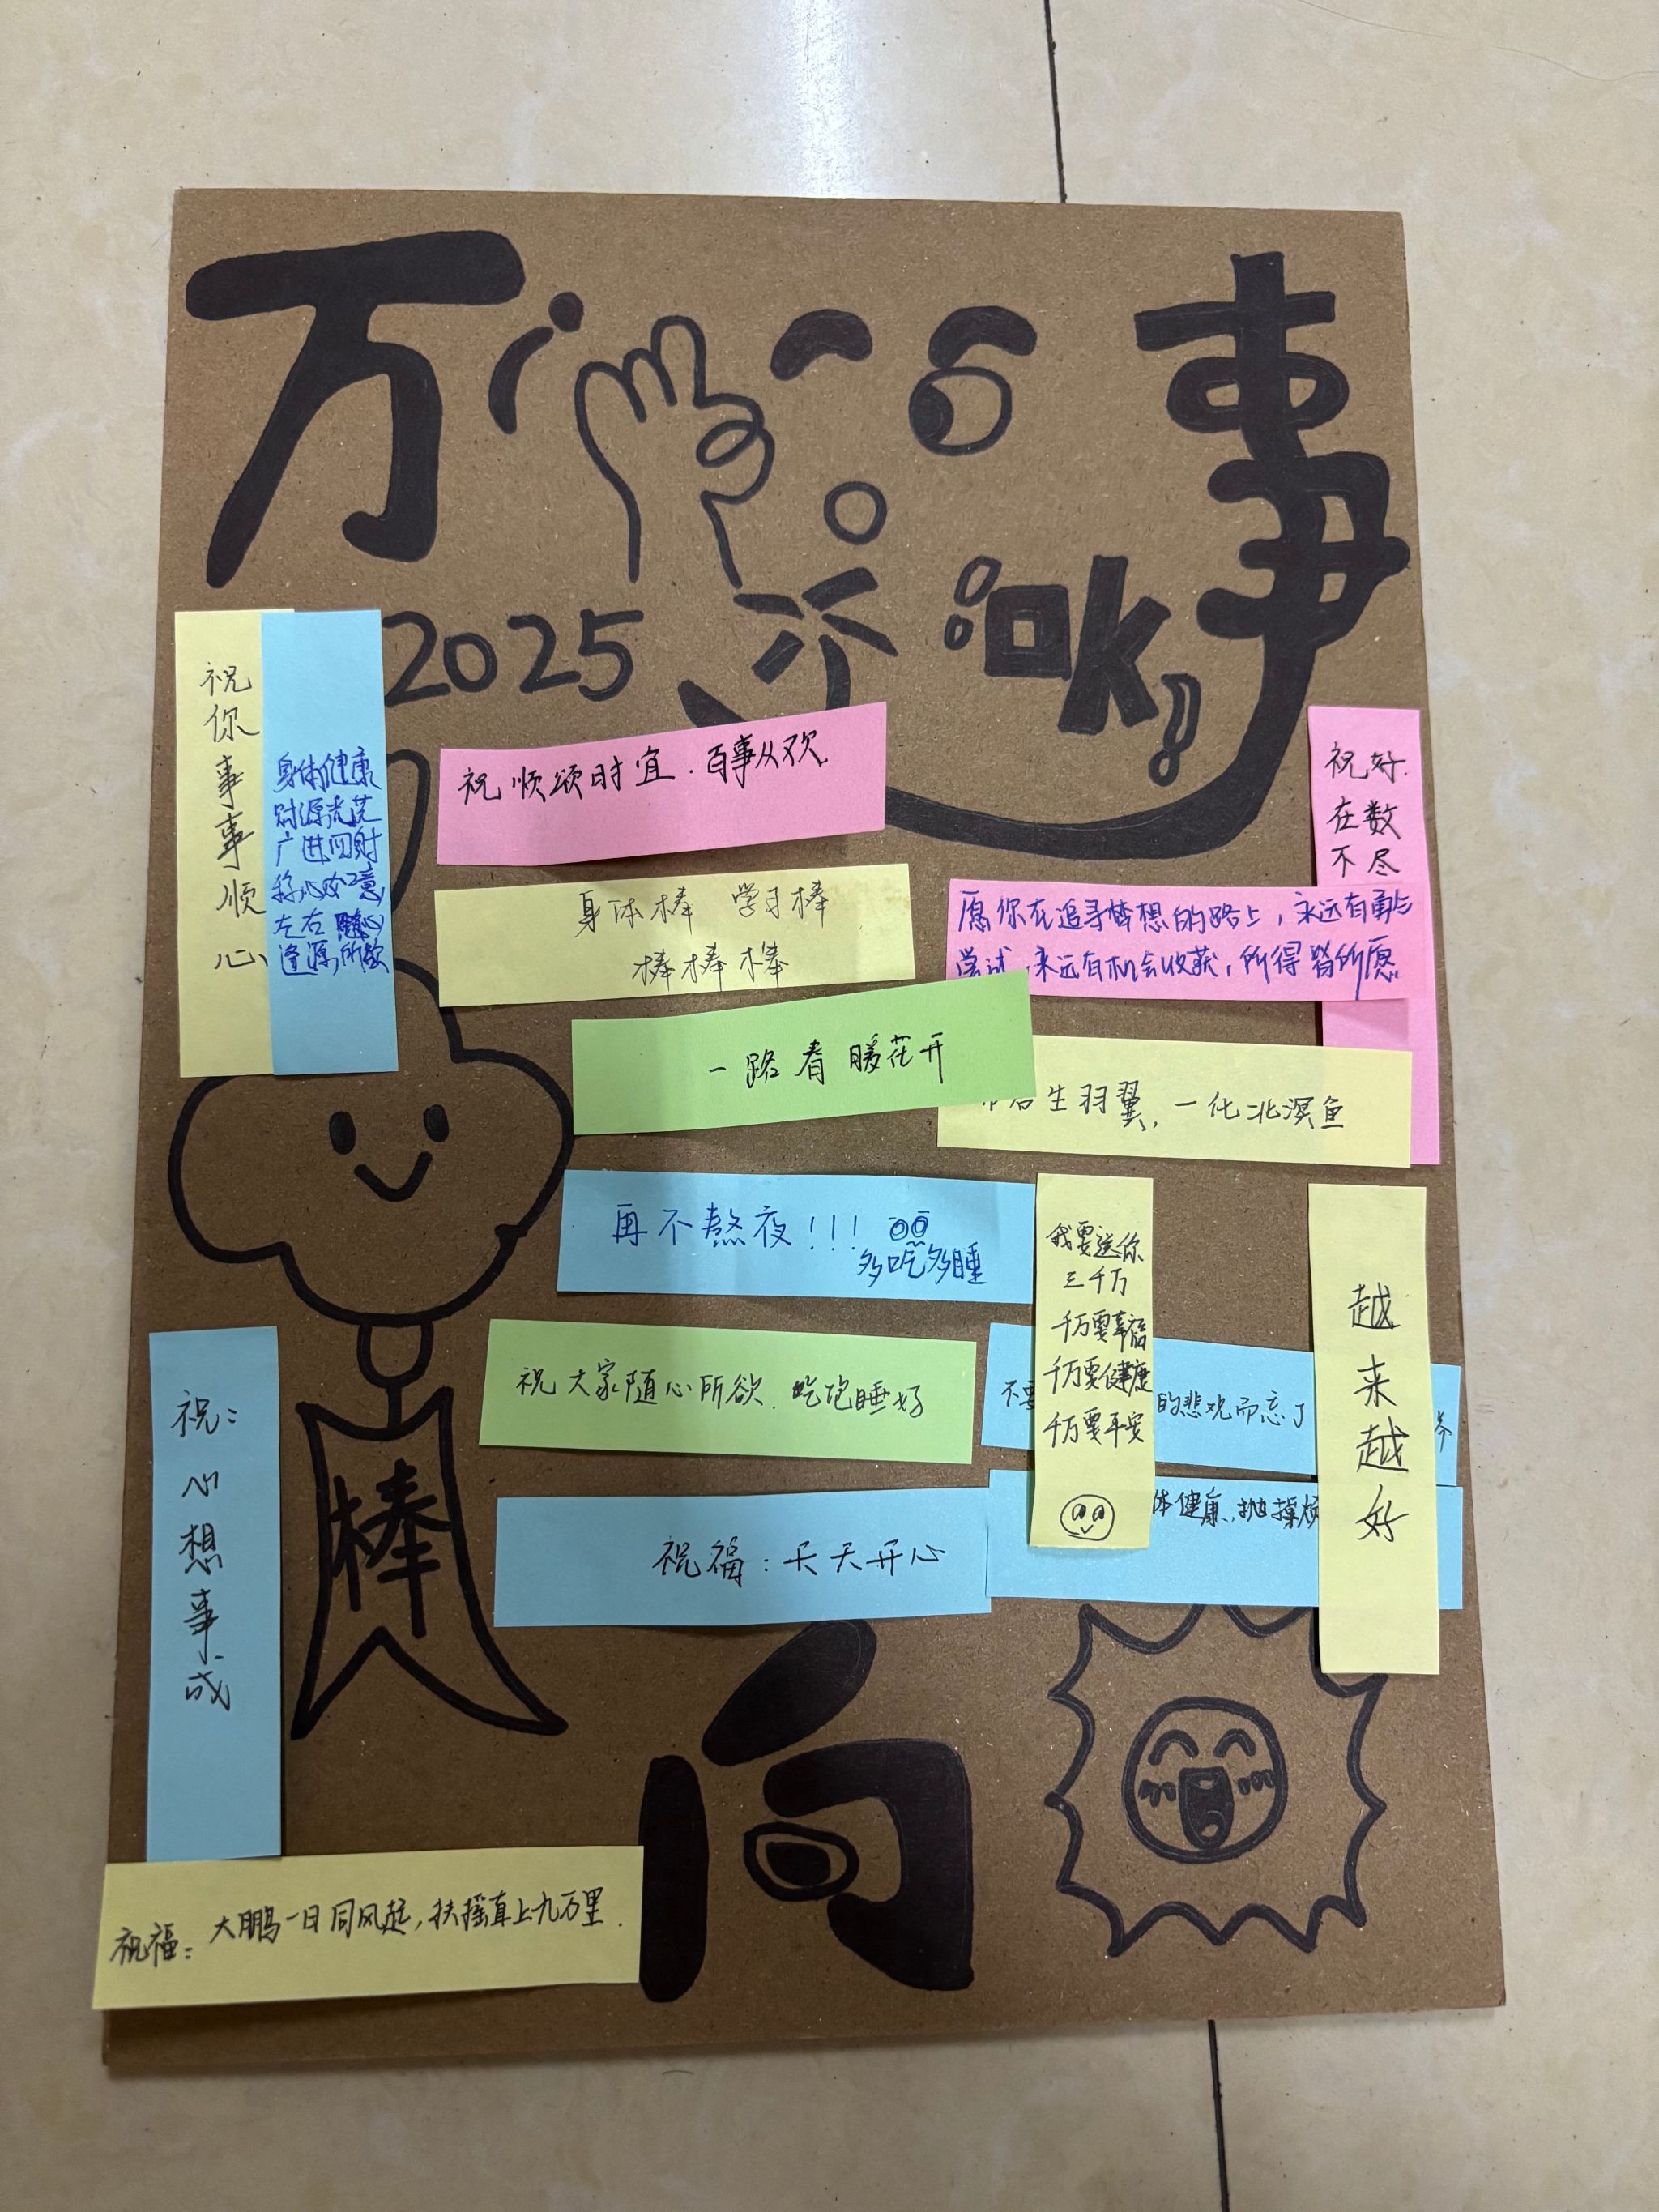 万事
ok
2025
祝你事事顺心
身体健康
财源光芒
广进四射
称心如意
左右随心
逢源所欲
祝顺颂时宜.百事从欢.
身体棒 学习棒
棒棒棒
祝好.
在数
不尽
愿你在追寻梦想的路上，永远有勇气
尝试，永远有机会收获，所得皆所愿
一路春暖花开
生羽翼，一化北溟鱼
再不熬夜!!!
多吃多睡
我要送你
三千万
千万要幸福
千万要健康
千万要平安
越来越好
祝大家随心所欲.吃饱睡好
不要
的悲观而忘了
体健康,抛掉烦
祝福：天天开心
祝：心想事成
棒
向
祝福：大鹏一日同风起，扶摇直上九万里.